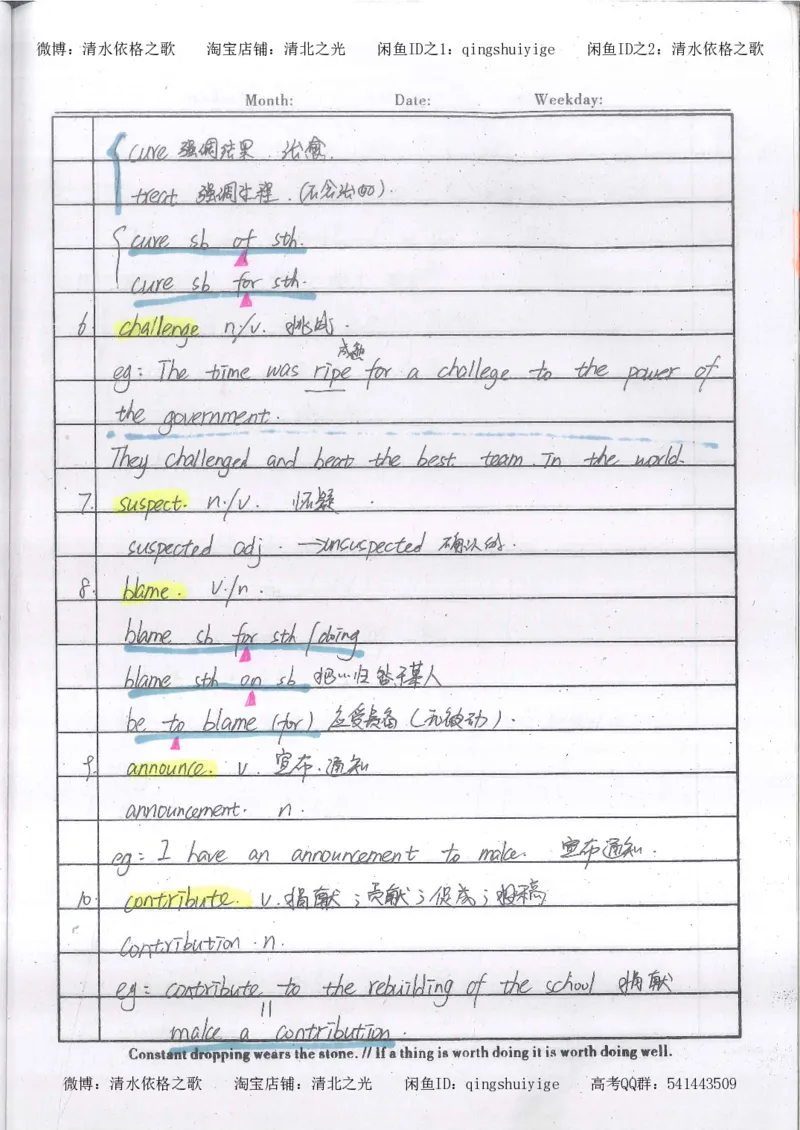 微博：清水依格之歌 淘宝店铺：清北之光 闲鱼ID之1：qingshuiyige 闲鱼ID之2：清水依格之歌
Month: Date: Weekday:
cure 强调结果 治愈.
treat 强调过程.(不含治的).
cure sb of sth.
cure sb for sth.
6 challenge n/v. 挑战.
成熟
eg: The time was ripe for a challege to the power of
the government.
They challenged and beat the best team. In the world.
7. suspect. n./v. 怀疑.
suspected adj. →unsuspected 确认的.
8. blame. v./n.
blame sb for sth/doing
blame sth on sb 把…归咎于某人
be to blame (for) 应受责备(无被动).
9. announce. v. 宣布.通知
announcement. n.
eg: I have an announcement to make. 宣布通知.
10. contribute. v.捐献;贡献;促成;投稿
contribution n.
eg: contribute to the rebuilding of the school 捐献
||
make a contribution.
Constant dropping wears the stone. // If a thing is worth doing it is worth doing well.
微博：清水依格之歌 淘宝店铺：清北之光 闲鱼ID：qingshuiyige 高考QQ群：541443509